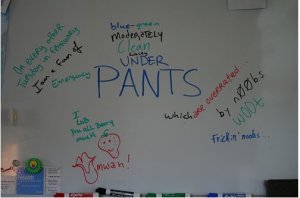 On every other
Tuesday in February
I am a fan of
Emergency
blue-green
moderately
Clean
UNDER
PANTS
which are overrated...
by n00bs
w00t
Frickin' noobs...
I
Lub
You all very
much
mwah!
health